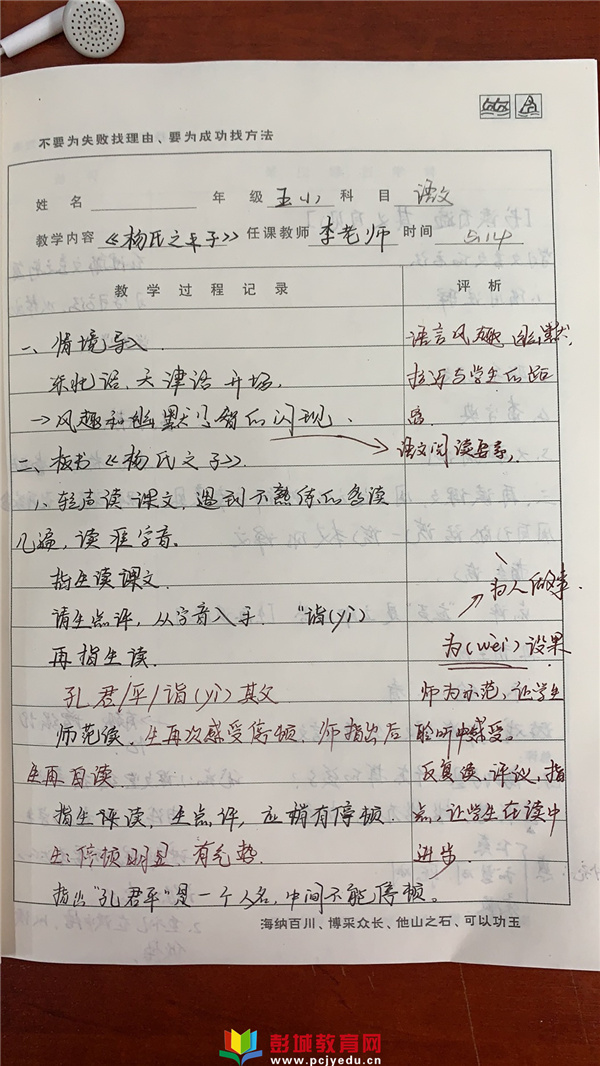 不要为失败找理由、要为成功找方法
姓 名 年 级 五(1) 科 目 语文
教学内容 《杨氏之子》 任课教师 李老师 时间 5.14
教 学 过 程 记 录
评 析
一、情境导入.
东北话,天津话 开场.
→风趣和幽默是智的闪现.
二、板书《杨氏之子》.
1、轻声读 课文,遇到不熟练的多读
几遍,读准字音。
指生读课文.
请生点评,从字音入手. "诣(yì)
再指生读.
孔君/平/诣(yì)其父
师范读,生再次感受停顿.师指出后
生再自读.
指生评读,生点评,应稍有停顿.
生:停顿明显 有气势.
指出"孔君平"是一个人名,中间不能停顿。
语言风趣 幽默,
拉近与学生的距
离.
语文阅读
为人做事.
为(wèi)设果
师为示范,让学生
聆听中感受。
反复读、评议,指
点,让学生在读中
进步.
海纳百川、博采众长、他山之石、可以功玉
彭城教育网
www.pcjyedu.cn